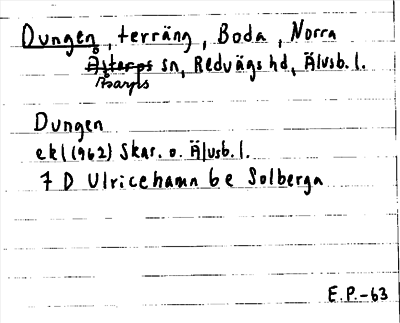 Dungen, terräng, Boda, Norra
Åsarps sn, Redvägs hd, Älvsb. l.
Dungen
ekl (1962) Skar. o. Älvsb. l.
7 D Ulricehamn 6 e Solberga
E.P.-63